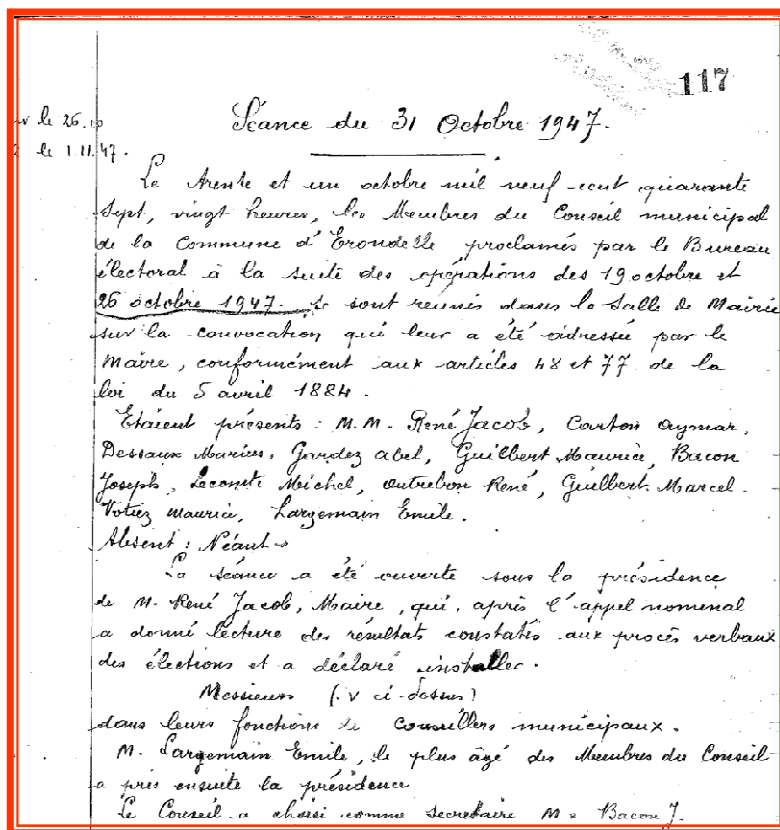 117
le 26.10
Séance du 31 Octobre 1947.
le 1 11.47.
Le trente et un octobre mil neuf cent quarante
Sept, vingt heures, les Membres du Conseil municipal
de la Commune d'Erondelle proclamés par le Bureau
électoral à la suite des opérations des 19 octobre et
26 octobre 1947. Se sont réunis dans la Salle de Mairie
sur la convocation qui leur a été adressée par le
Maire, conformément aux articles 48 et 77 de la
loi du 5 avril 1884.
Etaient présents : M.M. René Jacob, Carton Aymar,
Dessaux Marius, Gourdez Abel, Guilbert Maurice, Bacon
Joseph, Lecomte Michel, Outrebon René, Guilbert Marcel.
Votiez Maurice, Largemain Emile.
Absent : Néant
La séance a été ouverte sous la présidence
de M. René Jacob, Maire, qui, après l'appel nominal
a donné lecture des résultats constatés aux procès verbaux
des élections et a déclaré installer.
Messieurs (v ci-dessus)
dans leurs fonctions de Conseillers municipaux.
M. Largemain Emile, le plus âgé des Membres du Conseil
a pris ensuite la présidence
Le Conseil a choisi comme Secrétaire M. Bacon J.